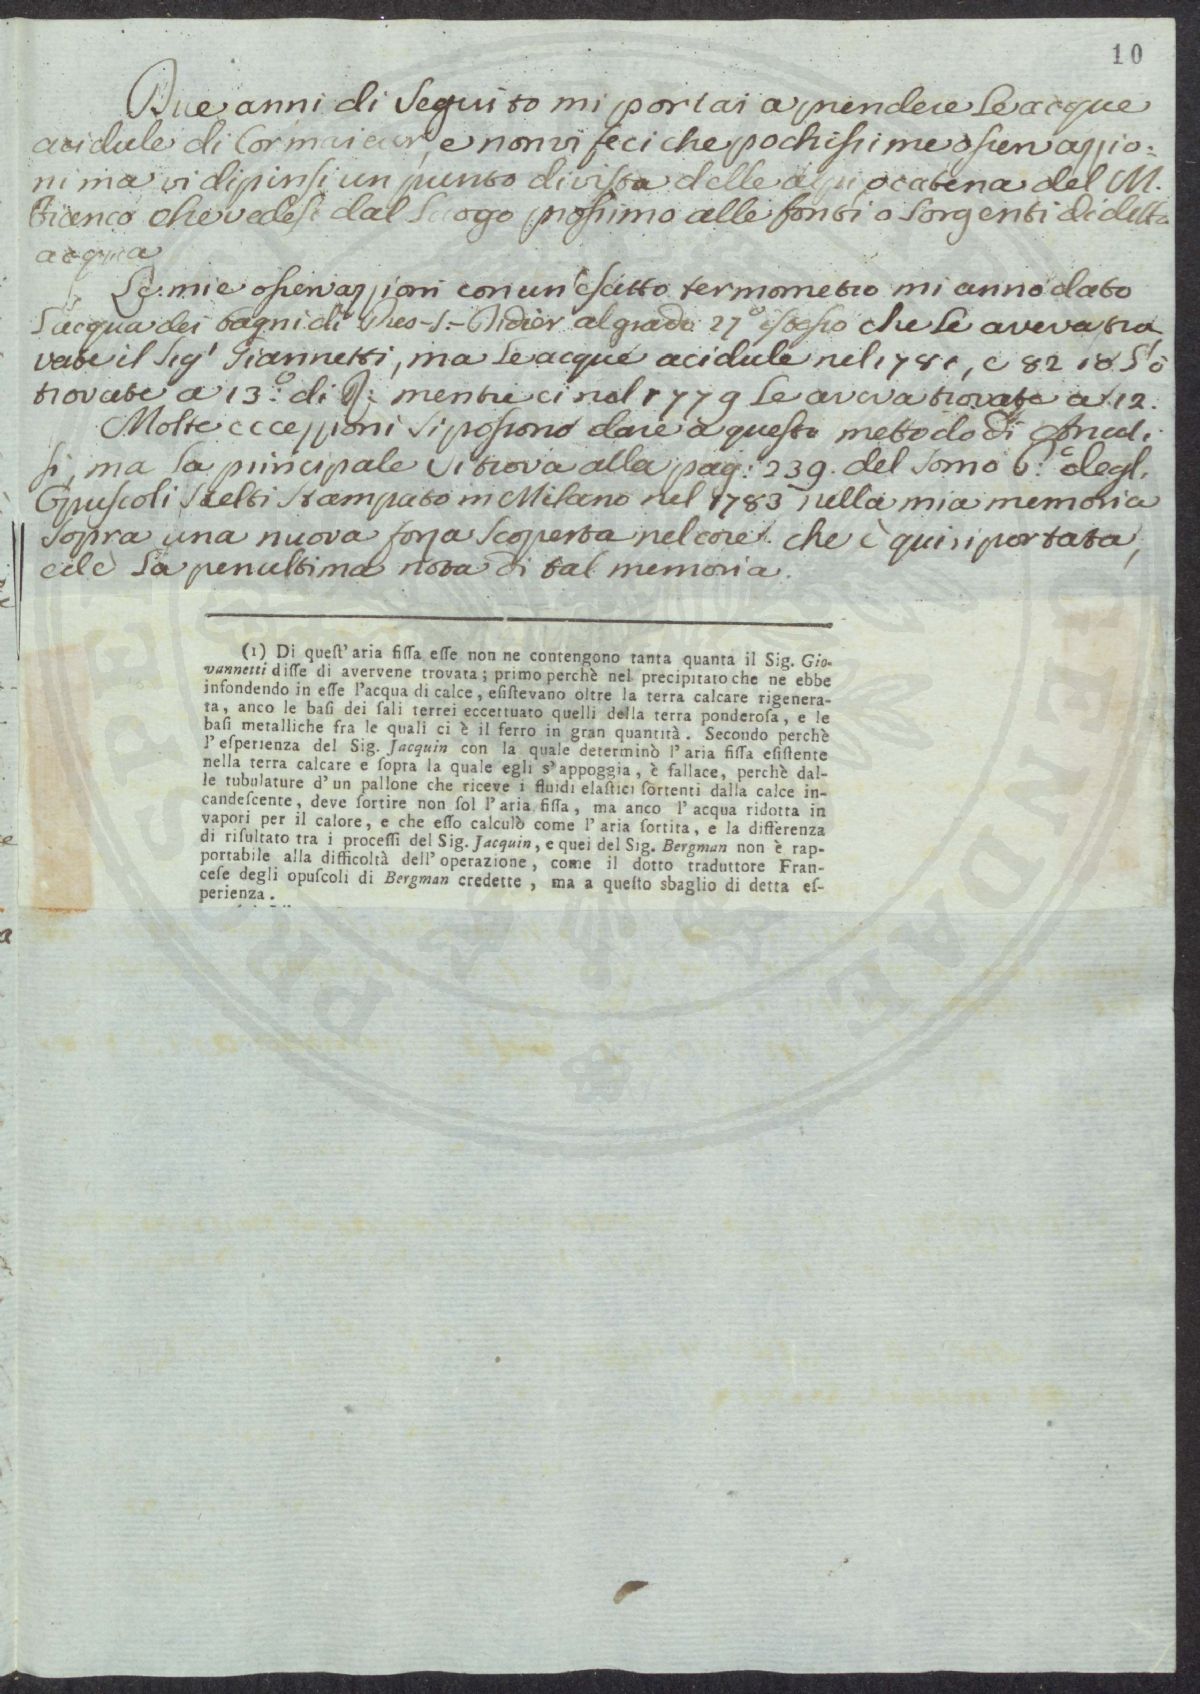 10
Due anni di seguito mi portai a prendere le acque
acidule di Cormaieur, e non vi feci che pochissime osservazio=
ni ma vi dipinsi un punto di vista delle alpi o catena del M.
Bianco che vedesi dal luogo prossimo alle fonti o sorgenti di detta
acqua
Le mie osservazioni con un esatto termometro mi anno dato
l'acqua dei bagni di Pres-S.-Didier al grado 27° istesso che le aveva tro
vate il Sigr Giannetti, ma le acque acidule nel 1781, e 82 io l'ò
trovate a 13°: di R: mentre ei nel 1779 le aveva trovate a 12.
Molte eccezzioni si possono dare a questo metodo di Analˌ
si, ma la principale si trova alla pag: 239. del tomo 6.° degl.
Opuscoli scelti stampato in Milano nel 1783 nella mia memoria
sopra una nuova forza scoperta nel core. che è qui riportata,
ed è la penultima nota di tal memoria.
(1) Di quest' aria fissa esse non ne contengono tanta quanta il Sig. Gio-
vannetti disse di avervene trovata; primo perchè nel precipitato che ne ebbe
infondendo in esse l'acqua di calce, esistevano oltre la terra calcare rigenera-
ta, anco le basi dei sali terrei eccettuato quelli della terra ponderosa, e le
basi metalliche fra le quali ci è il ferro in gran quantità. Secondo perchè
l'esperienza del Sig. Jacquin con la quale determinò l'aria fissa esistente
nella terra calcare e sopra la quale egli s'appoggia, è fallace, perchè dal-
le tubulature d'un pallone che riceve i fluidi elastici sortenti dalla calce in-
candescente, deve sortire non sol l'aria fissa, ma anco l'acqua ridotta in
vapori per il calore, e che esso calculò come l'aria sortita, e la differenza
di risultato tra i processi del Sig. Jacquin, e quei del Sig. Bergman non è rap-
portabile alla difficoltà dell'operazione, come il dotto traduttore Fran-
cese degli opuscoli di Bergman credette, ma a questo sbaglio di detta es-
perienza.